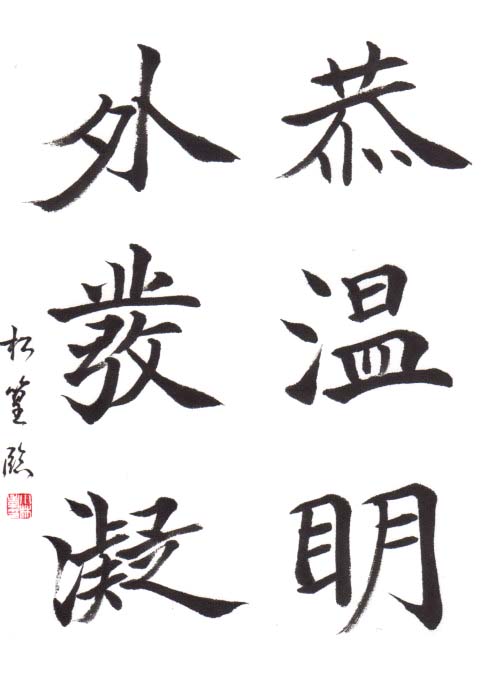 恭温明
外發凝
松篁臨